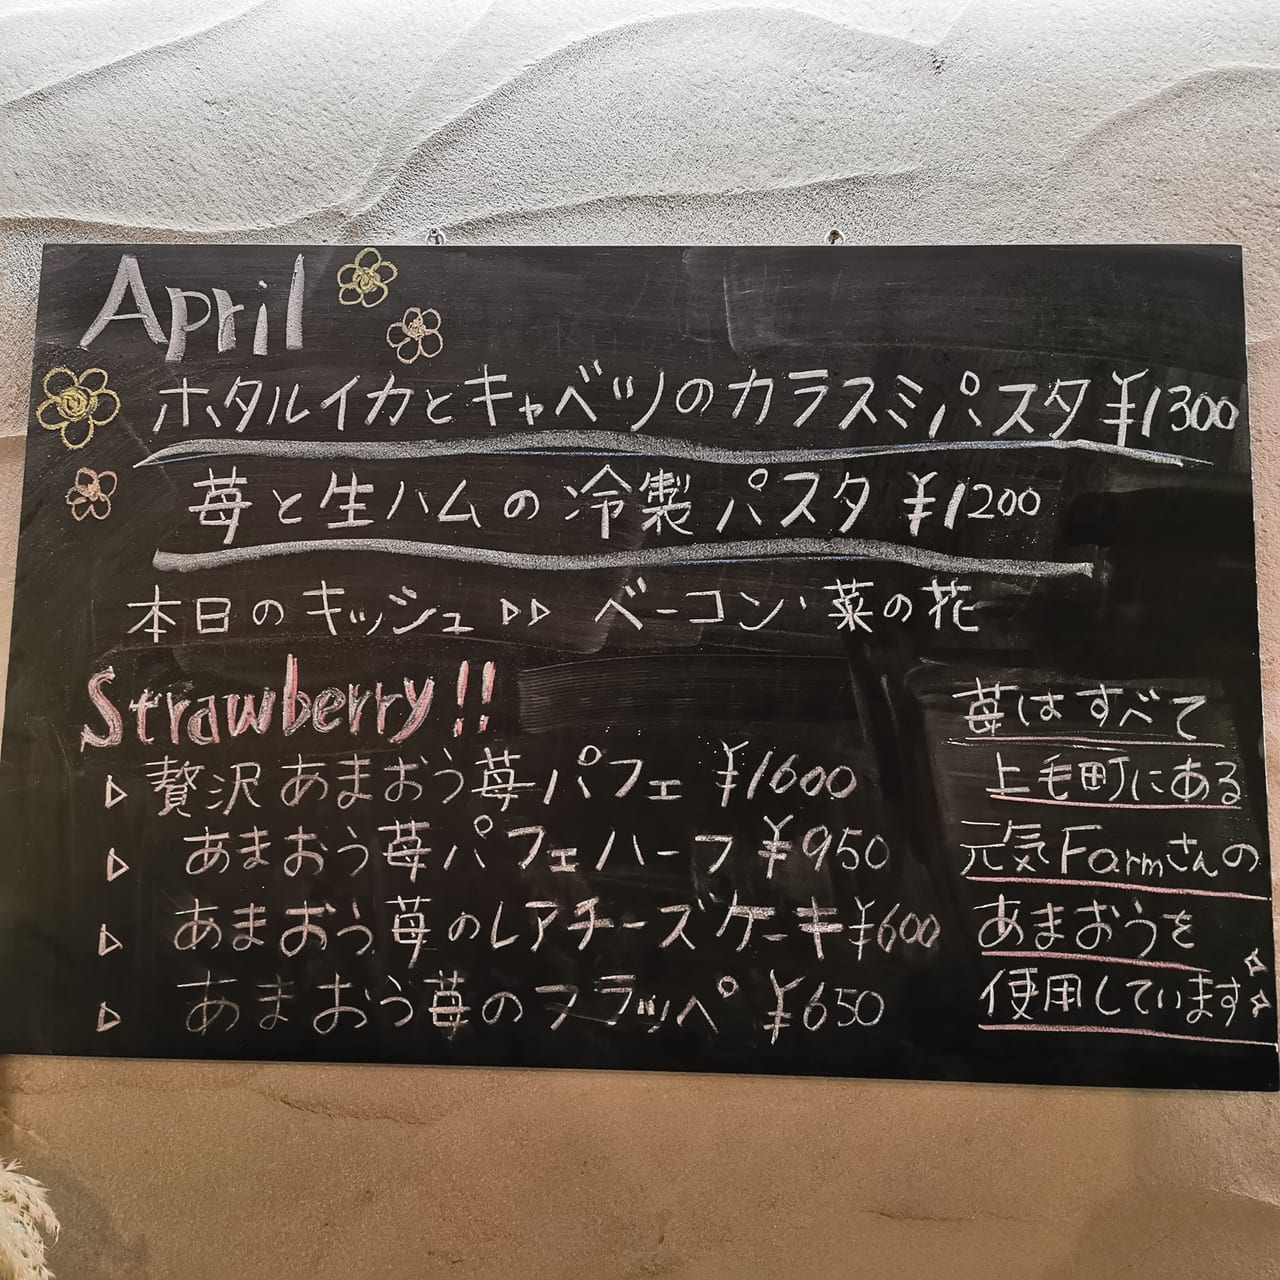 April
ホタルイカとキャベツのカラスミパスタ ¥1300
苺と生ハムの冷製パスタ ¥1200
本日のキッシュ ▷▷ ベーコン・菜の花
Strawberry!!
▷ 贅沢あまおう苺パフェ ¥1600
▷ あまおう苺パフェハーフ ¥950
▷ あまおう苺のレアチーズケーキ ¥600
▷ あまおう苺のフラッペ ¥650
苺はすべて
上毛町にある
元気Farmさんの
あまおうを
使用しています